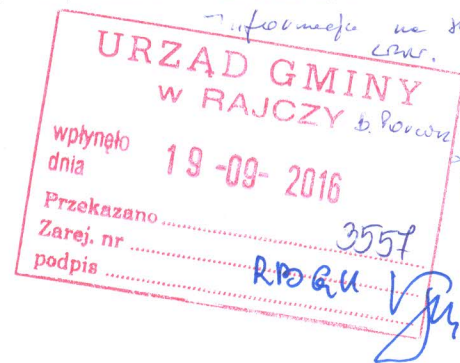 informacja na
URZĄD GMINY
w RAJCZY
wpłynęło
dnia 19-09-2016
Przekazano
Zarej. nr 3557
podpis